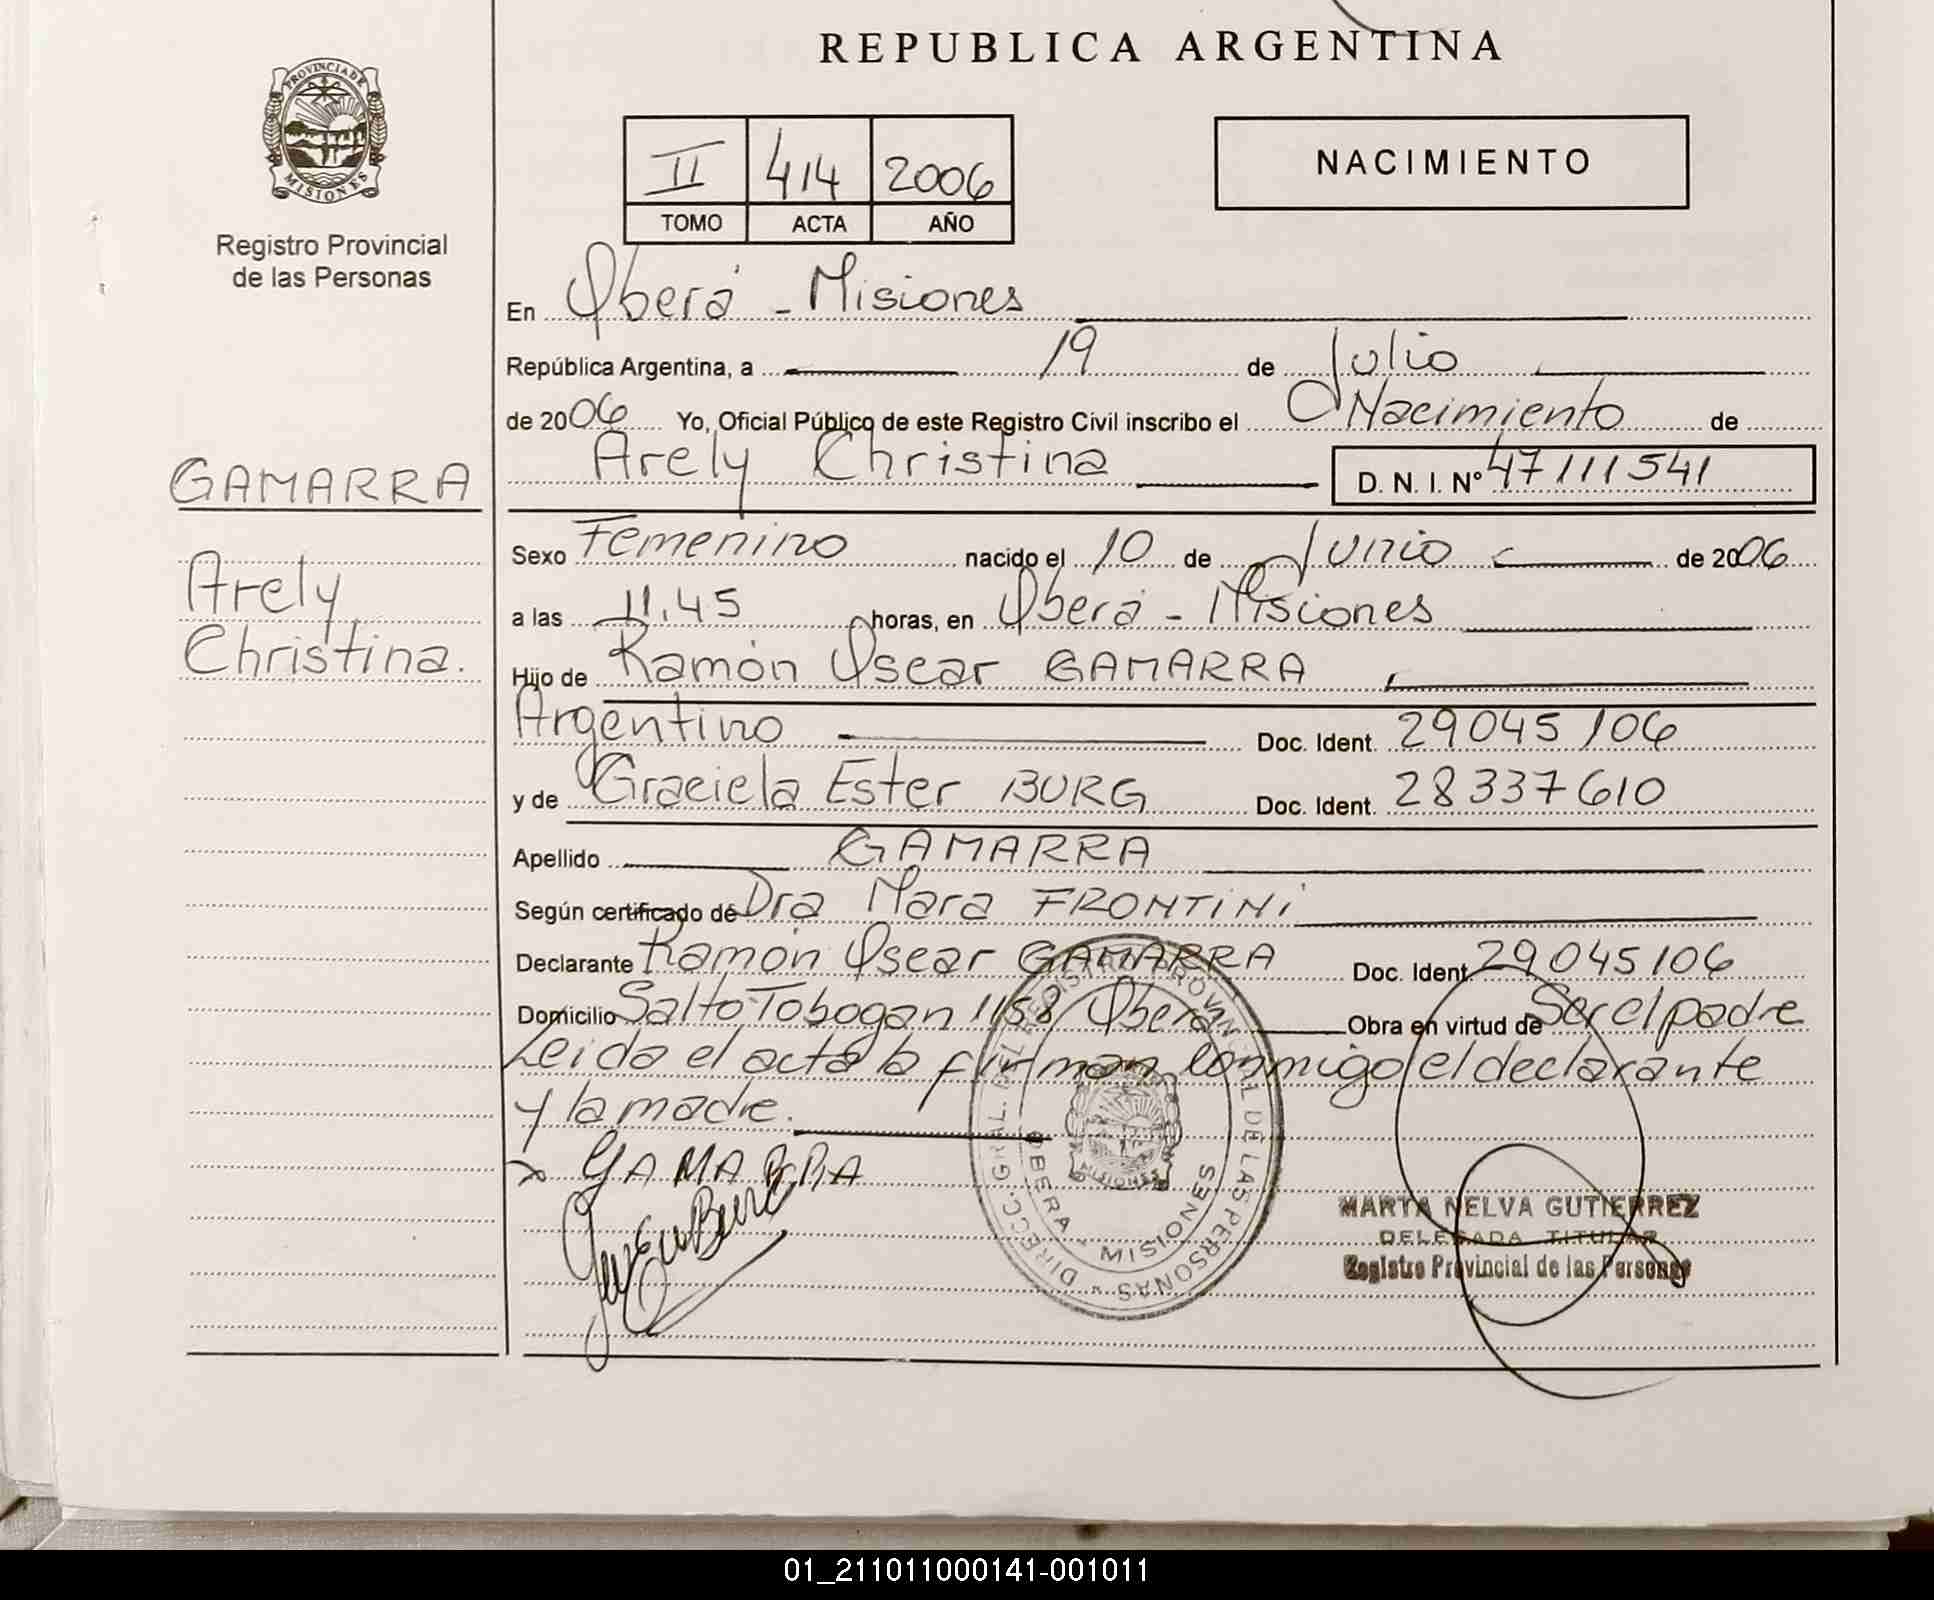 REPUBLICA ARGENTINA
PROVINCIA DE
MISIONES
Registro Provincial
de las Personas
II 414 2006
TOMO ACTA AÑO
NACIMIENTO
En Oberá - Misiones
República Argentina, a 19 de Julio
de 2006 Yo, Oficial Público de este Registro Civil inscribo el Nacimiento de
Arely Christina D. N. I. Nº 47111541
GAMARRA
Arely
Christina.
Sexo Femenino nacido el 10 de Junio de 2006
a las 11.45 horas, en Oberá - Misiones
Hijo de Ramón Oscar GAMARRA
Argentino Doc. Ident. 29045106
y de Graciela Ester BURG Doc. Ident. 28337610
Apellido GAMARRA
Según certificado de Dra Mara FRONTINI
Declarante Ramón Oscar GAMARRA Doc. Ident. 29045106
Domicilio Salto Tobogan 1158 Oberá Obra en virtud de Ser el padre
Leida el acta la firman conmigo el declarante
y la madre.
GAMARRA
DIRECC. GRAL. DEL REGISTRO PROVINCIAL DE LAS PERSONAS
OBERA - MISIONES
MISIONES
MARTA NELVA GUTIERREZ
DELEGADA TITULAR
Registro Provincial de las Personas
01_211011000141-001011